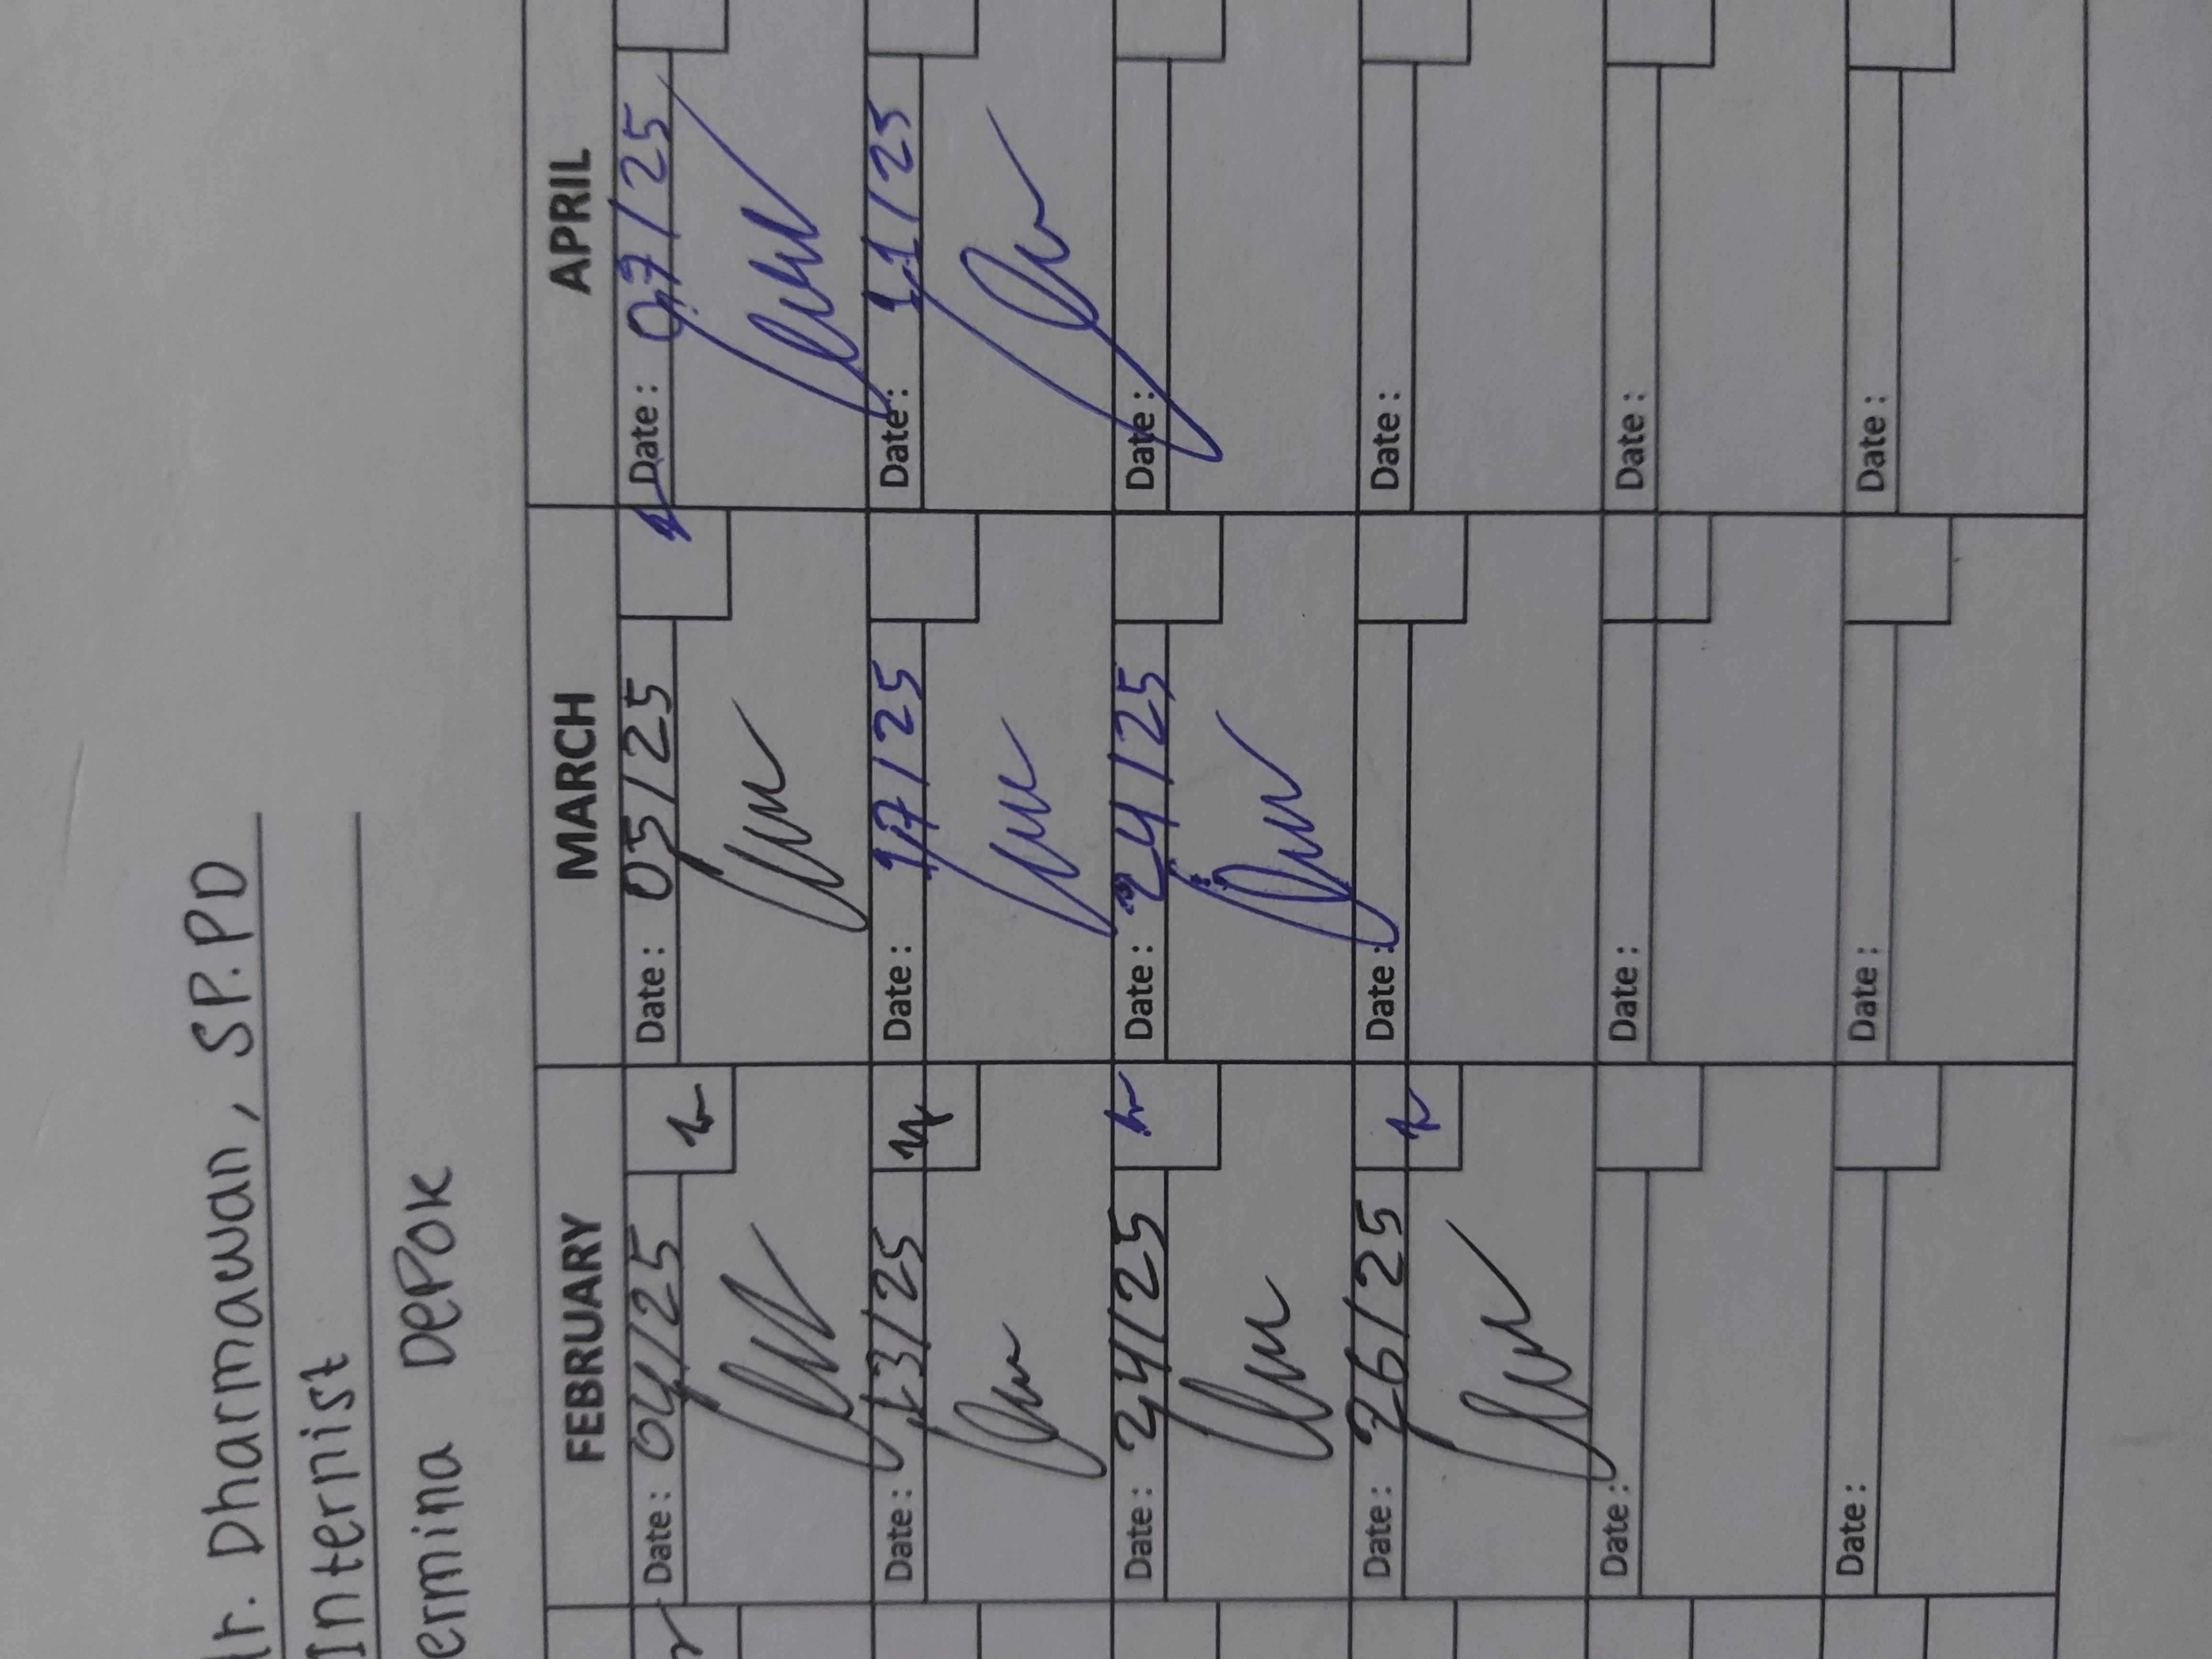 Dharmawan, SP.PD
Internist
DePOK
FEBRUARY MARCH APRIL
Date: 04/25 Date: 05/25 Date: 07/25
Date: 13/25 Date: 17/25 Date: 11/25
Date: 24/25 Date: 24/25 Date:
Date: 26/25 Date: Date:
Date: Date: Date:
Date: Date: Date: